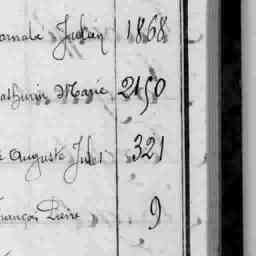 Julien 1868
Mathurin Marie 2150
Auguste Jules 321
François Pierre 9